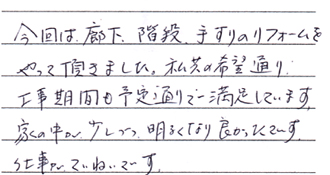 今回は、廊下、階段、手すりのリフォームを
やって頂きました。私共の希望通り、
工事期間も予定通りで満足しています。
家の中が少しづつ明るくなり良かったです。
仕事がていねいです。